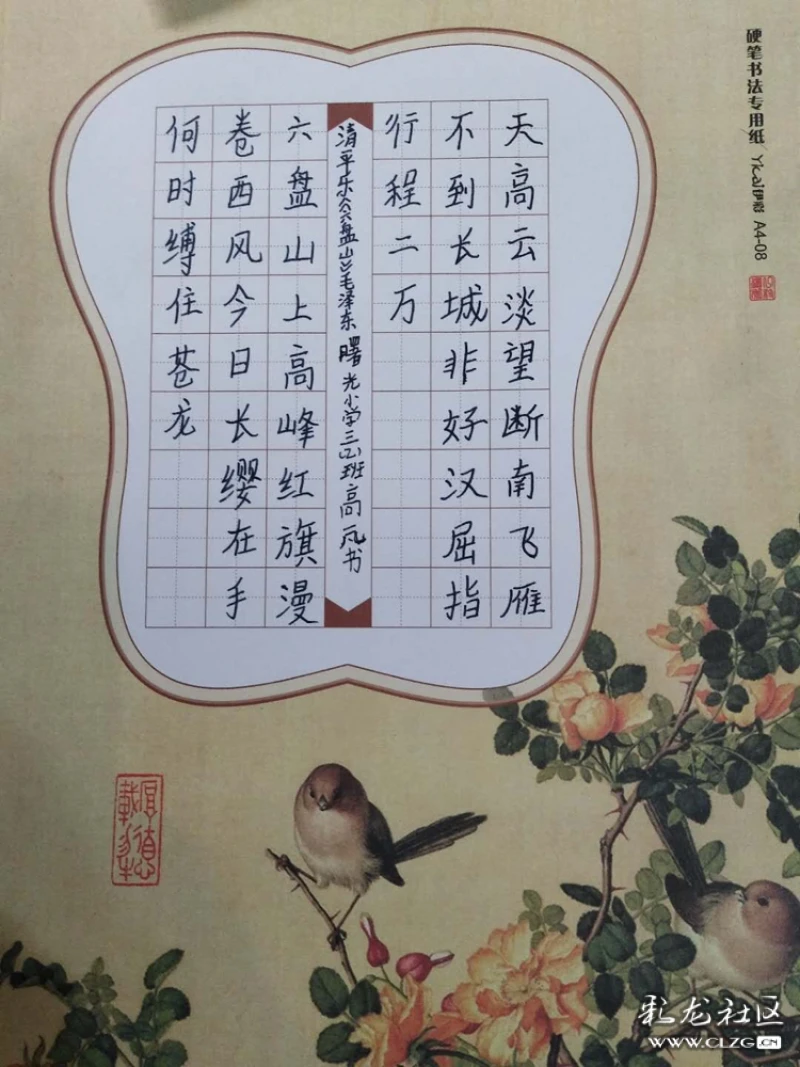 天高云淡望断南飞雁
不到长城非好汉屈指
行程二万
清平乐《六盘山》毛泽东 曙光小学三(2)班高凡书
六盘山上高峰红旗漫
卷西风今日长缨在手
何时缚住苍龙
硬笔书法专用纸 A4-08
厚德载物
彩龙社区
WWW.CLZG.CN